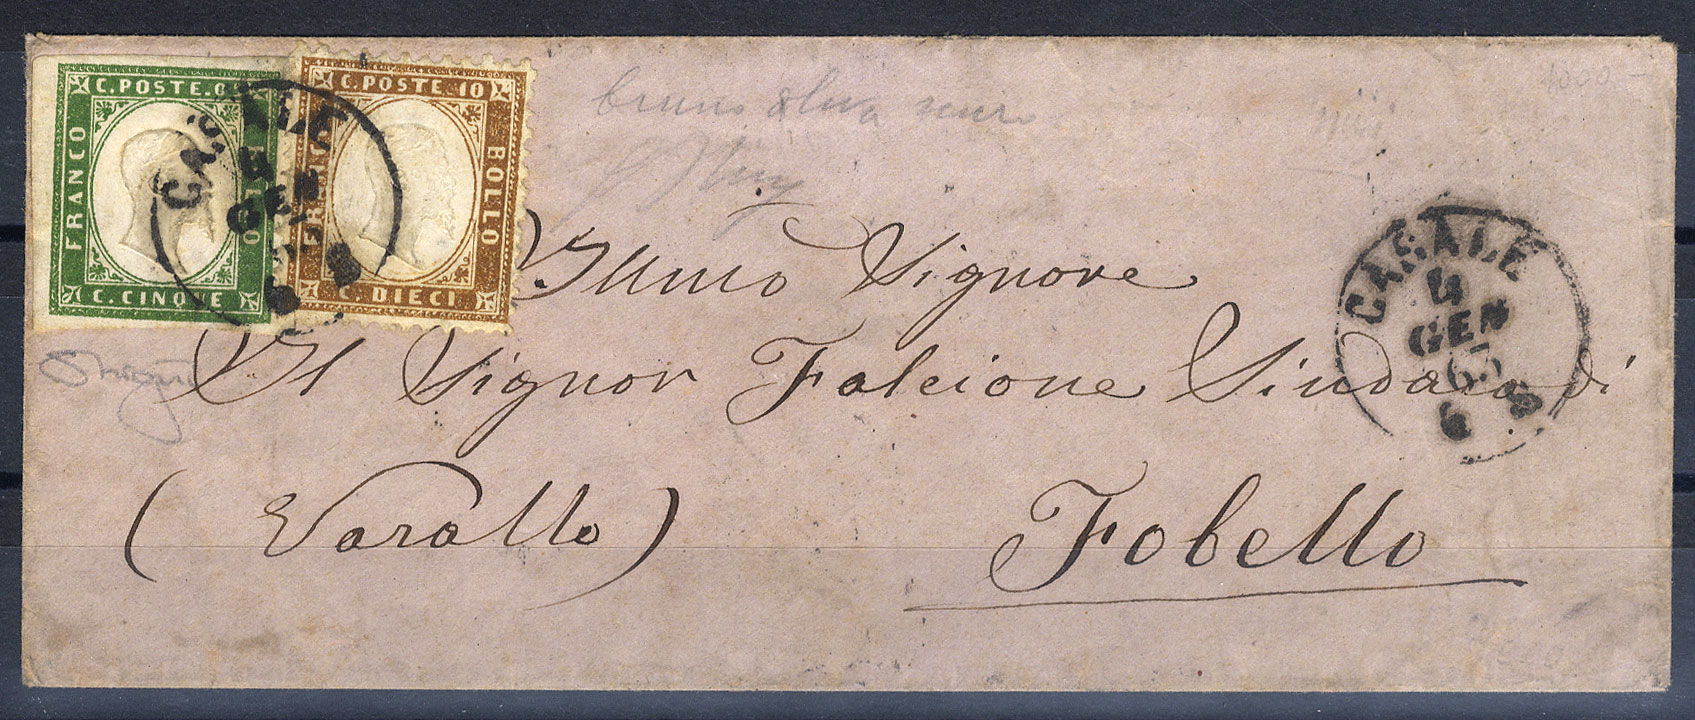 C. POSTE.
FRANCO
BOLLO
C. CINQUE
C. POSTE 10
FRANCO
BOLLO
C. DIECI
CASALE
4
GEN
63
6 S
Illmo Signore
Il Signor Falcione Sindaco di
(Varallo)
Fobello
CASALE
4
GEN
63
6 S